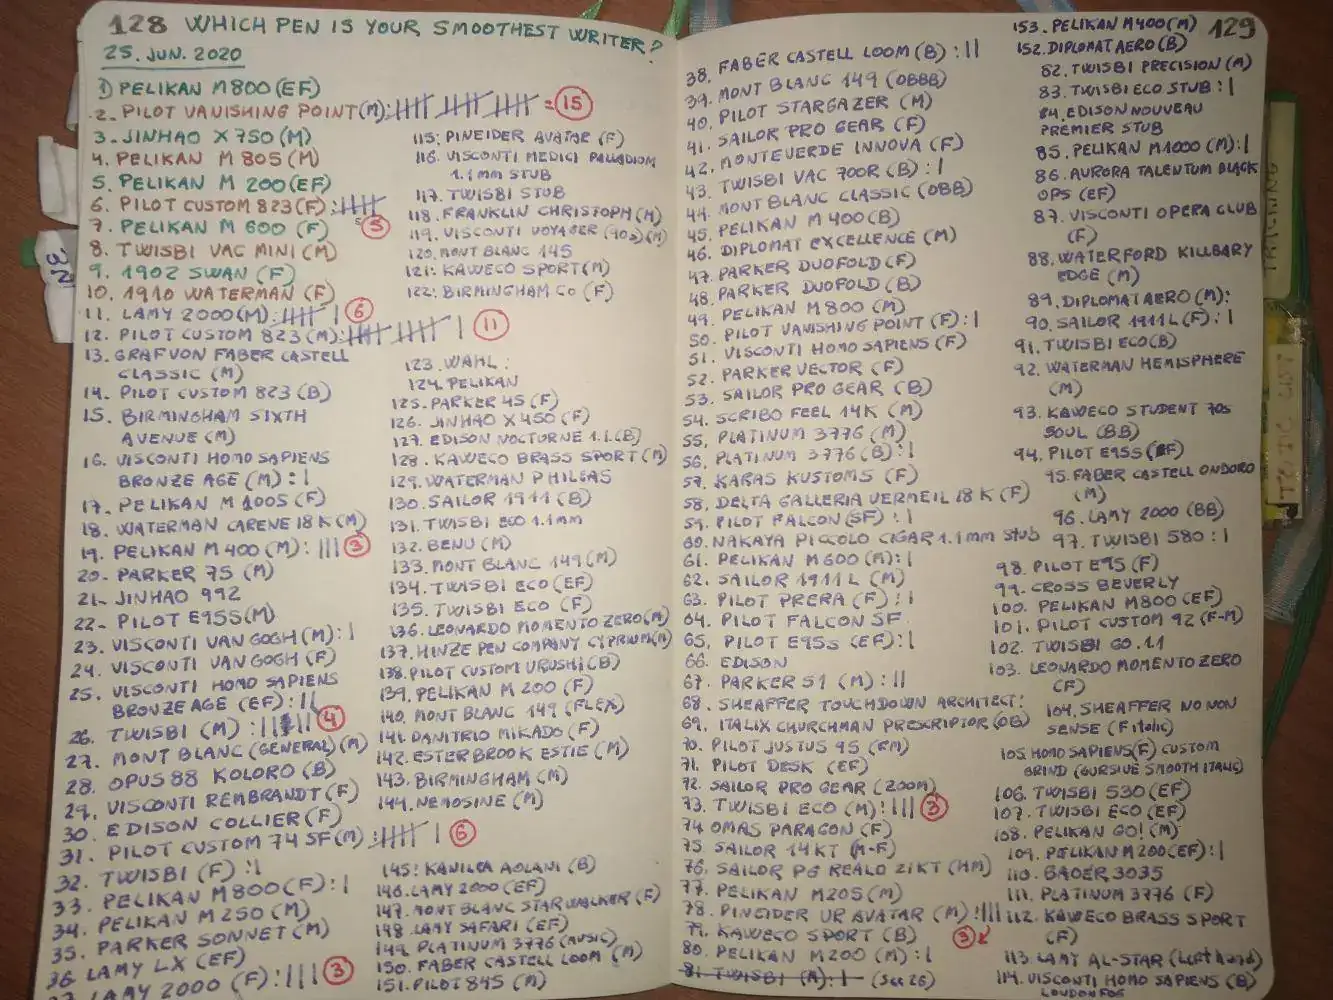 128 WHICH PEN IS YOUR SMOOTHEST WRITER?
25. JUN. 2020
1) PELIKAN M800 (EF)
2. PILOT VANISHING POINT (M): = 15
3. JINHAO X750 (M)
4. PELIKAN M 805 (M)
5. PELIKAN M 200 (EF)
6. PILOT CUSTOM 823 (F): 5
7. PELIKAN M 600 (F)
8. TWISBI VAC MINI (M)
9. 1902 SWAN (F)
10. 1910 WATERMAN (F)
11. LAMY 2000 (M): 6
12. PILOT CUSTOM 823 (M): 11
13. GRAF VON FABER CASTELL
CLASSIC (M)
14. PILOT CUSTOM 823 (B)
15. BIRMINGHAM SIXTH
AVENUE (M)
16. VISCONTI HOMO SAPIENS
BRONZE AGE (M): |
17. PELIKAN M 1005 (F)
18. WATERMAN CARENE 18 K (M)
19. PELIKAN M 400 (M): ||| 3
20. PARKER 75 (M)
21. JINHAO 992
22. PILOT E95S (M)
23. VISCONTI VAN GOGH (M): |
24. VISCONTI VAN GOGH (F)
25. VISCONTI HOMO SAPIENS
BRONZE AGE (EF): ||
26. TWISBI (M): 4
27. MONT BLANC (GENERAL) (M)
28. OPUS 88 KOLORO (B)
29. VISCONTI REMBRANDT (F)
30. EDISON COLLIER (F)
31. PILOT CUSTOM 74 SF (M): 6
32. TWISBI (F): |
33. PELIKAN M800 (F): |
34. PELIKAN M 250 (M)
35. PARKER SONNET (M)
36. LAMY LX (EF)
37. LAMY 2000 (F): ||| 3
115. PINEIDER AVATAR (F)
116. VISCONTI MEDICI PALLADIUM
1.1 mm STUB
117. TWISBI STUB
118. FRANKLIN CHRISTOPH (M)
119. VISCONTI VOYAGER (90s) (M)
120. MONT BLANC 145
121. KAWECO SPORT (M)
122. BIRMINGHAM Co (F)
123. WAHL:
124. PELIKAN
125. PARKER 45 (F)
126. JINHAO X450 (F)
127. EDISON NOCTURNE 1.1. (B)
128. KAWECO BRASS SPORT (M)
129. WATERMAN PHILEAS
130. SAILOR 1911 (B)
131. TWISBI ECO 1.1mm
132. BENU (M)
133. MONT BLANC 149 (M)
134. TWISBI ECO (EF)
135. TWISBI ECO (F)
136. LEONARDO MOMENTO ZERO (M)
137. HINZE PEN COMPANY CYPRIUM (M)
138. PILOT CUSTOM URUSHI (B)
139. PELIKAN M 200 (F)
140. MONT BLANC 149 (FLEX)
141. DANITRIO MIKADO (F)
142. ESTERBROOK ESTIE (M)
143. BIRMINGHAM (M)
144. NEMOSINE (M)
145. KANILEA AOLANI (B)
146. LAMY 2000 (EF)
147. MONT BLANC STARWALKER (F)
148. LAMY SAFARI (EF)
149. PLATINUM 3776 (MUSIC)
150. FABER CASTELL LOOM (M)
151. PILOT 845 (M)
129
38. FABER CASTELL LOOM (B): ||
39. MONT BLANC 149 (OBBB)
40. PILOT STARGAZER (M)
41. SAILOR PRO GEAR (F)
42. MONTEVERDE INNOVA (F)
43. TWISBI VAC 700R (B): |
44. MONT BLANC CLASSIC (OBB)
45. PELIKAN M 400 (B)
46. DIPLOMAT EXCELLENCE (M)
47. PARKER DUOFOLD (F)
48. PARKER DUOFOLD (B)
49. PELIKAN M 800 (M)
50. PILOT VANISHING POINT (F): |
51. VISCONTI HOMO SAPIENS (F)
52. PARKER VECTOR (F)
53. SAILOR PRO GEAR (B)
54. SCRIBO FEEL 14K (M)
55. PLATINUM 3776 (M)
56. PLATINUM 3776 (B): |
57. KARAS KUSTOMS (F)
58. DELTA GALLERIA VERMEIL 18 K (F)
59. PILOT FALCON (SF): |
60. NAKAYA PICCOLO CIGAR 1.1mm STUB
61. PELIKAN M600 (M): |
62. SAILOR 1911 L (M)
63. PILOT PRERA (F): |
64. PILOT FALCON SF
65. PILOT E95S (EF): |
66. EDISON
67. PARKER 51 (M): ||
68. SHEAFFER TOUCHDOWN ARCHITECT:
69. ITALIX CHURCHMAN PRESCRIPTOR (OB)
70. PILOT JUSTUS 95 (FM)
71. PILOT DESK (EF)
72. SAILOR PRO GEAR (ZOOM)
73. TWISBI ECO (M): ||| 3
74 OMAS PARAGON (F)
75 SAILOR 14KT (M-F)
76. SAILOR PG REALO 21KT (HM)
77. PELIKAN M205 (M)
78. PINEIDER UR AVATAR (M): ||| 3
79. KAWECO SPORT (B)
80. PELIKAN M200 (M): |
81. TWISBI (M): | (See 26)
153. PELIKAN M400 (M)
152. DIPLOMAT AERO (B)
82. TWISBI PRECISION (M)
83. TWISBI ECO STUB: |
84. EDISON NOUVEAU
PREMIER STUB
85. PELIKAN M1000 (M): |
86. AURORA TALENTUM BLACK
OPS (EF)
87. VISCONTI OPERA CLUB
(F)
88. WATERFORD KILLBARY
EDGE (M)
89. DIPLOMAT AERO (M):
90. SAILOR 1911L (F): |
91. TWISBI ECO (B)
92. WATERMAN HEMISPHERE
(M)
93. KAWECO STUDENT 70s
SOUL (BB)
94. PILOT E95S (EF)
95. FABER CASTELL ONDORO
(M)
96. LAMY 2000 (BB)
97. TWISBI 580: |
98. PILOT E95 (F)
99. CROSS BEVERLY
100. PELIKAN M800 (EF)
101. PILOT CUSTOM 92 (F-M)
102. TWISBI GO. 1.1
103. LEONARDO MOMENTO ZERO
(F)
104. SHEAFFER NO NON
SENSE (F italic)
105 HOMO SAPIENS (F) CUSTOM
GRIND (CURSIVE SMOOTH ITALIC)
106. TWISBI 530 (EF)
107. TWISBI ECO (EF)
108. PELIKAN GO! (M)
109. PELIKAN M200 (EF): |
110. BAOER 3035
111. PLATINUM 3776 (F)
112. KAWECO BRASS SPORT
(F)
113. LAMY AL-STAR (Left hand)
114. VISCONTI HOMO SAPIENS (B)
LONDON FOG
TRACKING